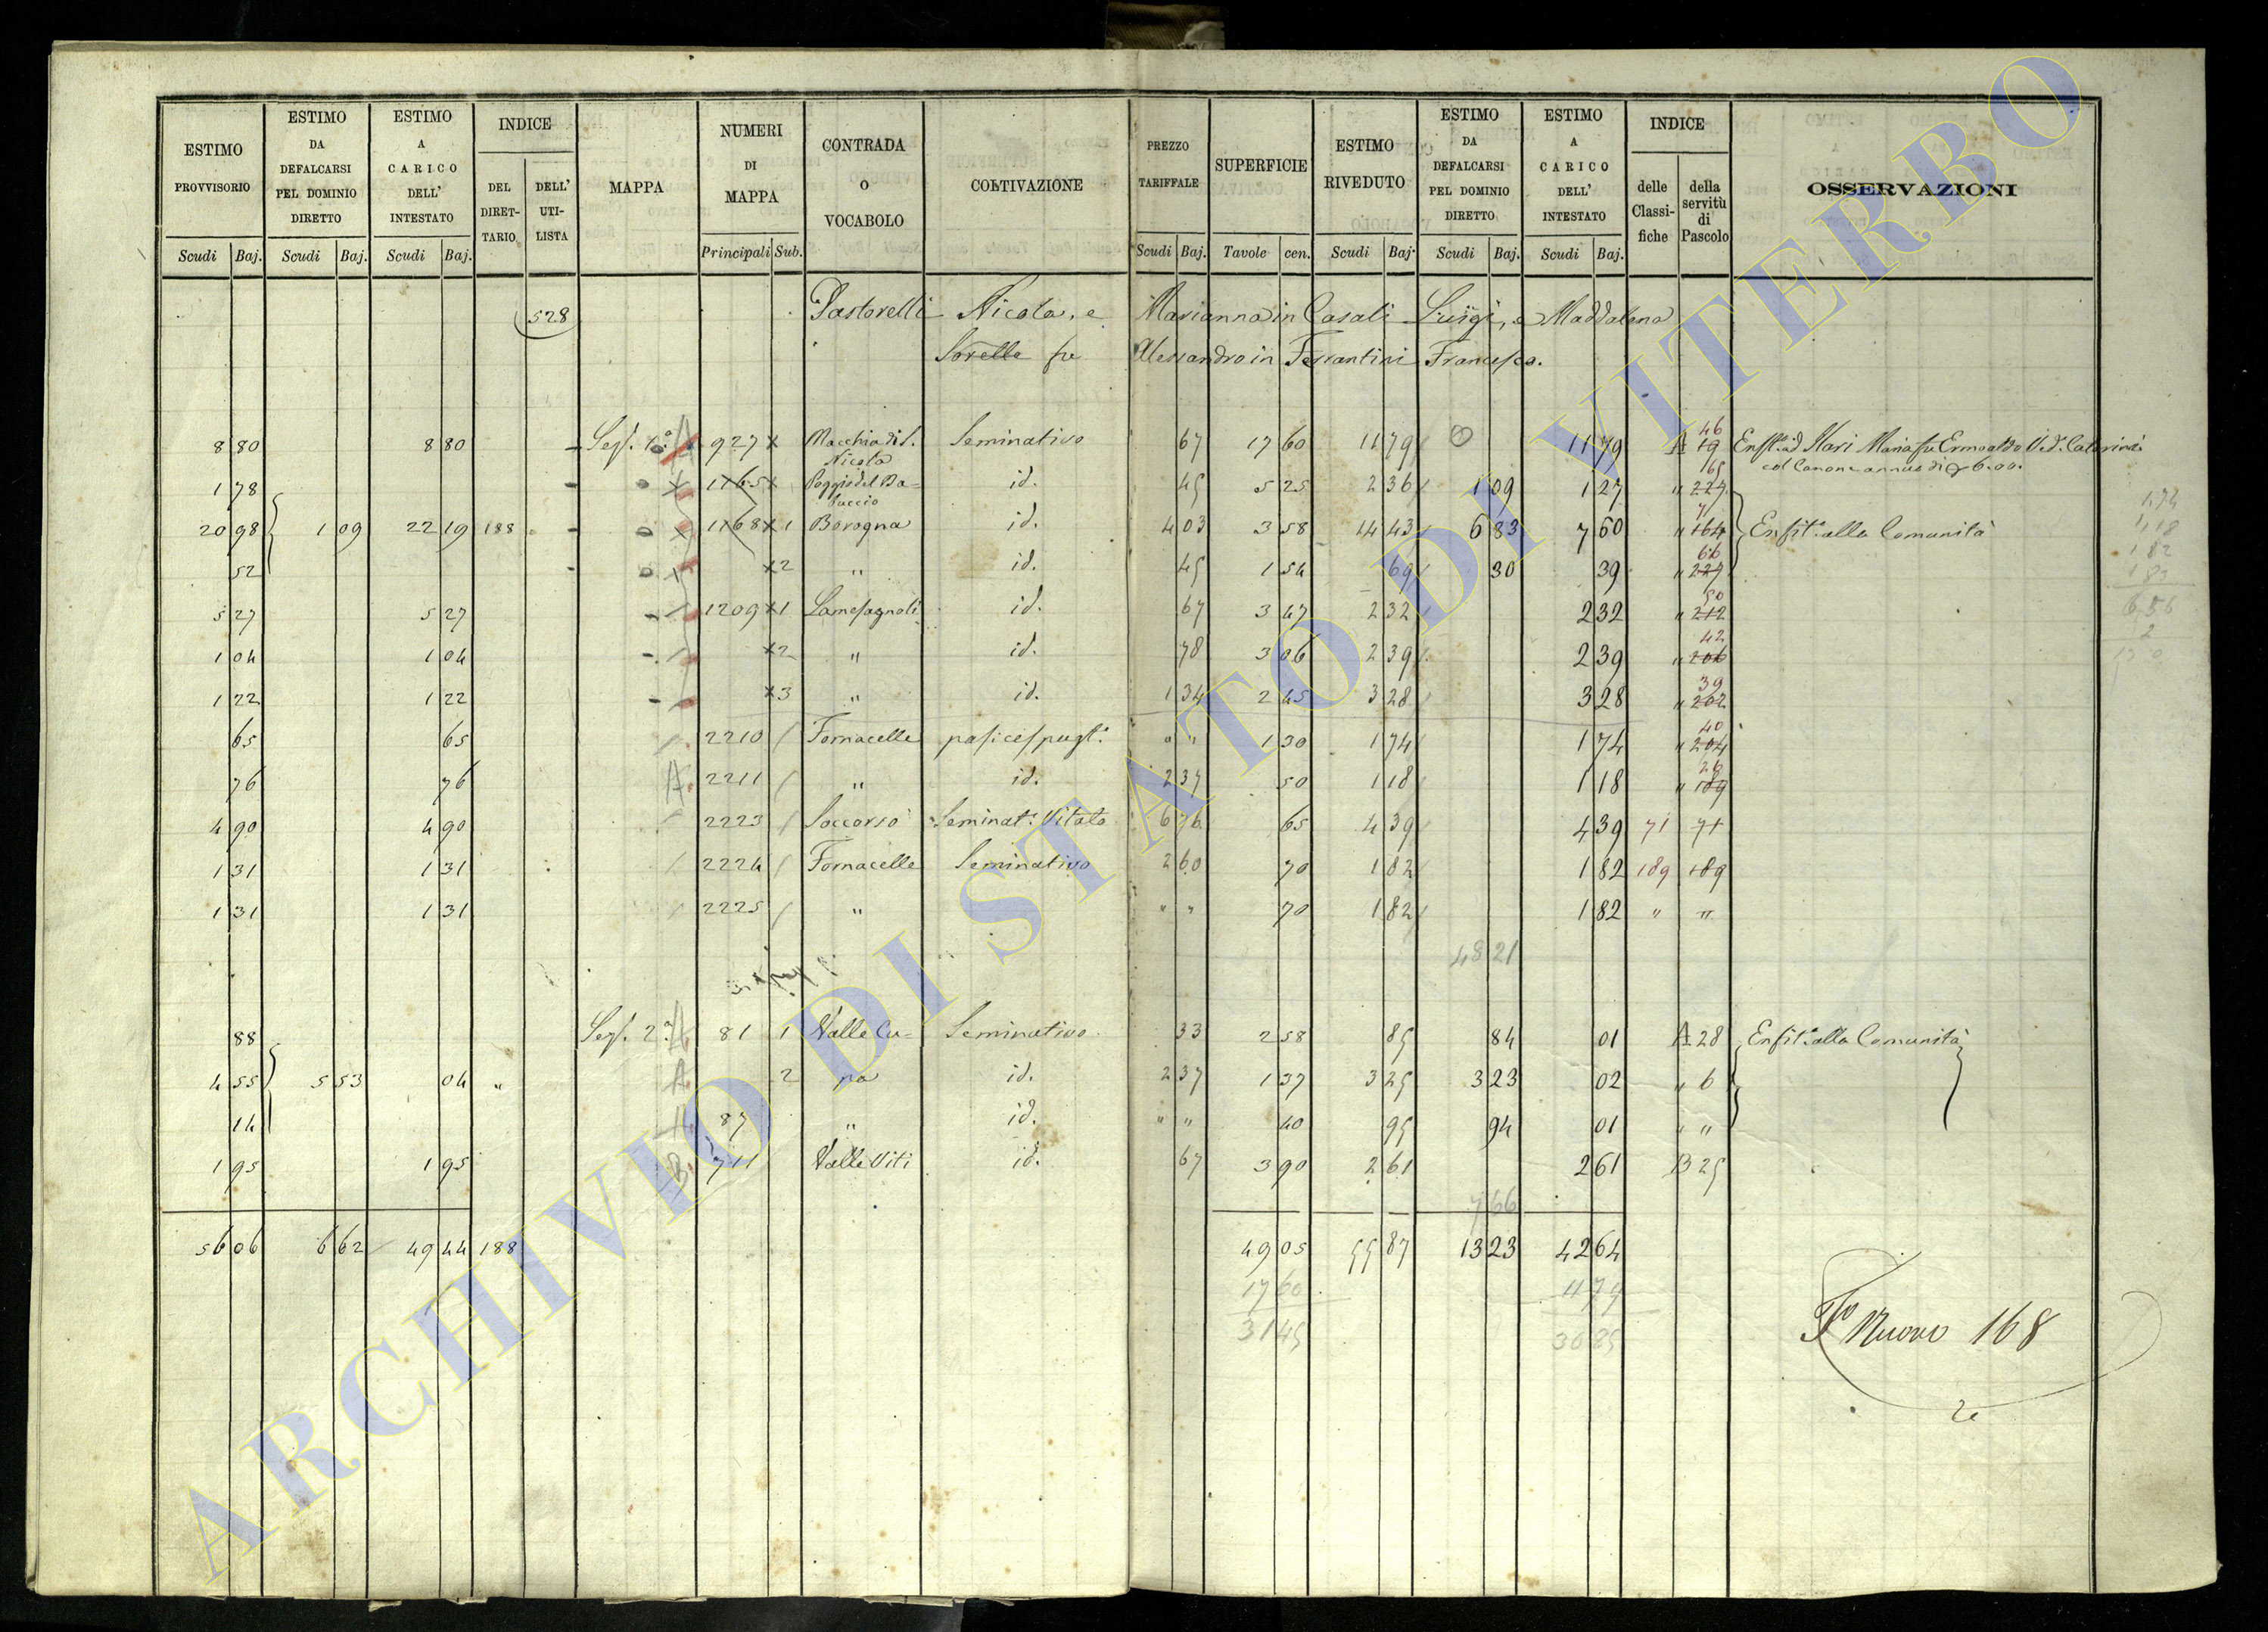 ESTIMO PROVVISORIO Scudi Baj. | ESTIMO DA DEFALCARSI PEL DOMINIO DIRETTO Scudi Baj. | ESTIMO A CARICO DELL' INTESTATO Scudi Baj. | INDICE DEL DIRETTARIO DELL' UTILISTA | MAPPA | NUMERI DI MAPPA Principali Sub. | CONTRADA O VOCABOLO | COLTIVAZIONE | PREZZO TARIFFALE Scudi Baj. | SUPERFICIE Tavole cen. | ESTIMO RIVEDUTO Scudi Baj. | ESTIMO DA DEFALCARSI PEL DOMINIO DIRETTO Scudi Baj. | ESTIMO A CARICO DELL' INTESTATO Scudi Baj. | INDICE delle Classifiche della servitù di Pascolo | OSSERVAZIONI
528 Pastorelli Nicola, e Marianna in Casali Luigi, e Maddalena
Sorelle fu Alessandro in Ferrantini Francesco.
8 80 8 80 Sez. 1ª A 927 x Macchia di S. Nicola Seminativo 67 17 60 11 79 11 79 A 19 46 Enfit. ad Mari Maria fu Ermoaldo Ved. Caterini
col Canone annuo di 6.00.
1 78 1165 x Poggio del Baluccio id. 45 5 25 2 36 1 09 1 27 " 227 65
20 98 1 09 22 19 188 1168 x 1 Borogna id. 4 03 3 58 14 43 6 83 7 60 " 164 71 Enfit. alla Comunità
52 x 2 " id. 45 1 54 69 30 39 " 227 66
5 27 5 27 1209 x 1 Lamesagnoli id. 67 3 47 2 32 2 32 " 212 50
1 04 1 04 x 2 " id. 78 3 06 2 39 2 39 " 206 42
1 22 1 22 x 3 " id. 1 34 2 45 3 28 3 28 " 202 39
65 65 2210 Fornacelle pas. ces. pugt. " " 1 30 1 74 1 74 " 204 40
76 76 A 2211 " id. 2 37 50 1 18 1 18 " 189 26
4 90 4 90 2223 Soccorso Seminat. Vitato 6 76 65 4 39 4 39 71 71
1 31 1 31 2224 Fornacelle Seminativo 2 60 70 1 82 1 82 189 189
1 31 1 31 2225 " " " 70 1 82 1 82 " "
48 21
88 Sez. 2ª A 81 1 Valle Cu- Seminativo 33 2 58 85 84 01 A 28 Enfit. alla Comunità
4 55 5 53 04 " A 2 pa id. 2 37 1 37 3 25 3 23 02 " 6
14 A 87 " id. " " 40 95 94 01 " "
1 95 1 95 B. 711 Valle Viti id. 67 3 90 2 61 2 61 B 25
7 66
56 06 6 62 49 44 188 49 05 55 87 13 23 42 64
17 60 11 79
31 45 30 85
1.74
1.18
1 82
1 82
6 56
2
Fº Nuovo 168
ARCHIVIO DI STATO DI VITERBO